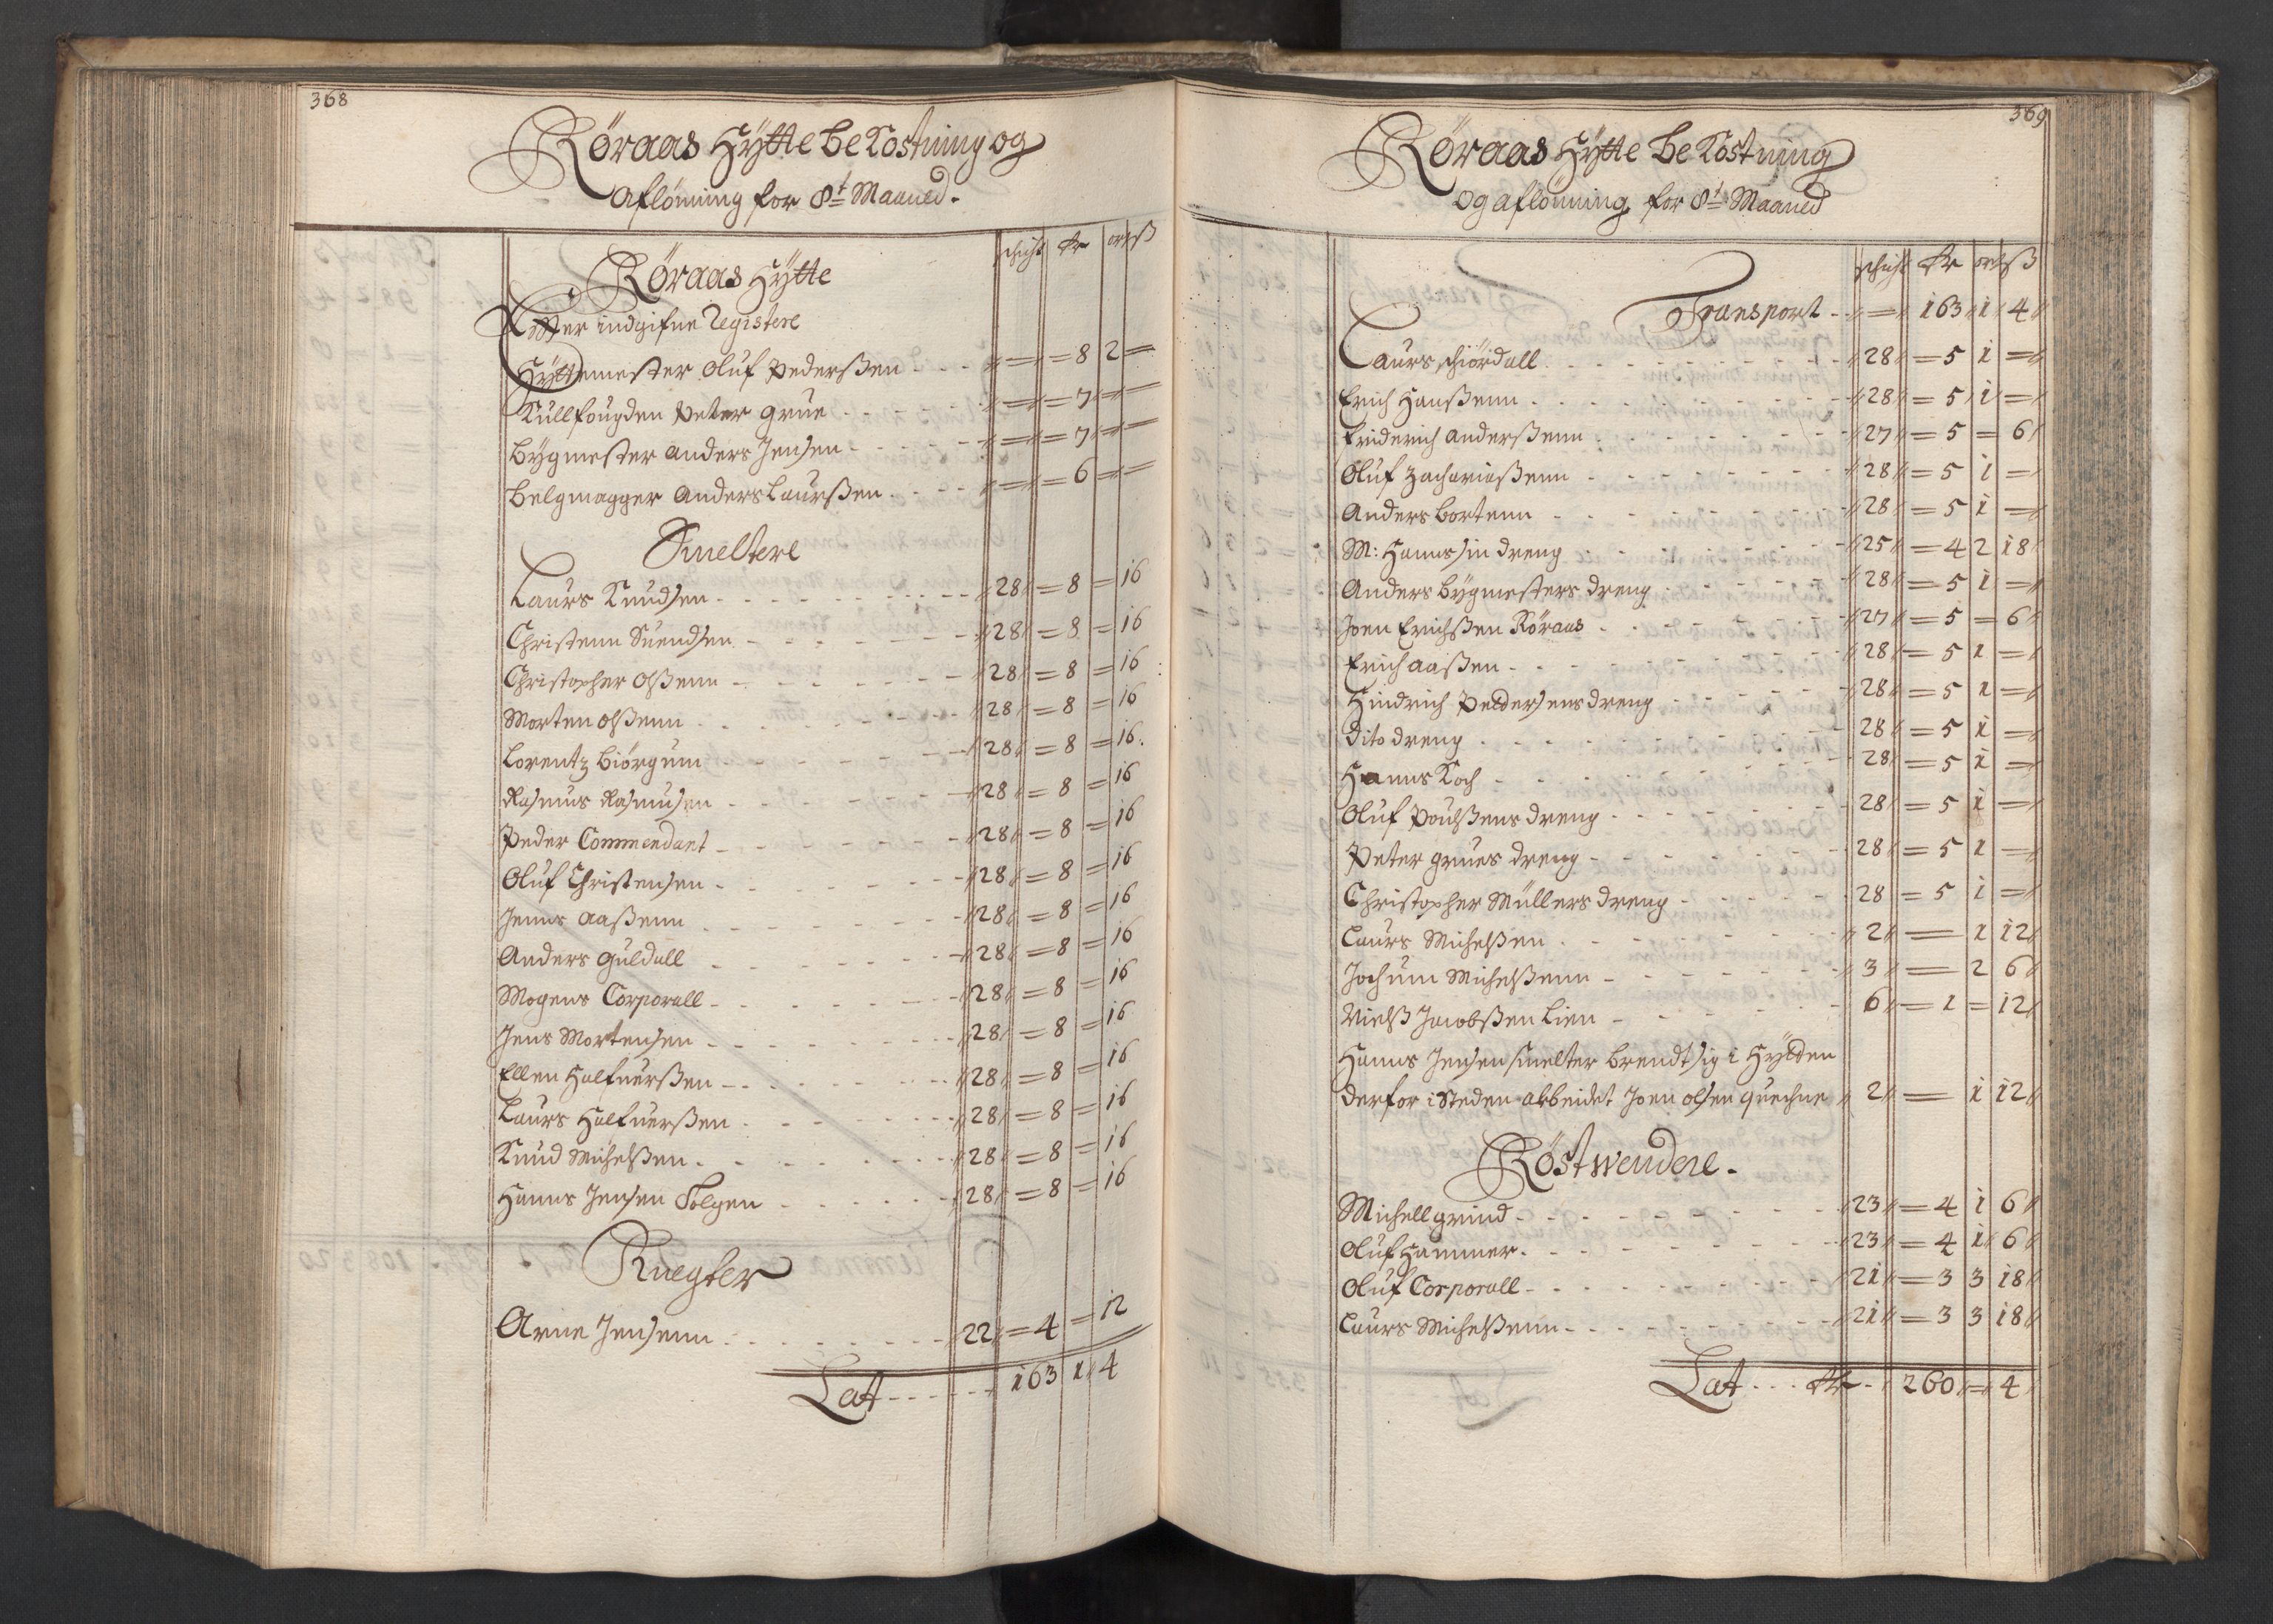 368
Röraas Hÿtte beKostning og
Aflönning for 8t Maaned.
schicht Rr ort ß
Röraas Hÿtte
Efter indgifne Registere
Hÿttemester Oluf Pederßen - - - = = 8 2 =
Kullfougden Peter Grue - - - = = 7 = =
Bÿgmester Anders Jensen - - - = = 7 = =
Belgmagger Anders Laurßen - - - = = 6 = =
Smeltere
Laurs Knudsen - - - 28 = 8 = 16
Christenn Suendsen - - - 28 = 8 = 16
Christopher Olßenn - - - 28 = 8 = 16
Morten Olßenn - - - 28 = 8 = 16
Lorentz Biörgum - - - 28 = 8 = 16
Rasmus Rasmusen - - - 28 = 8 = 16
Peder Commendant - - - 28 = 8 = 16
Oluf Christensen - - - 28 = 8 = 16
Jenns Aaßenn - - - 28 = 8 = 16
Anders Guldall - - - 28 = 8 = 16
Mogens Corporall - - - 28 = 8 = 16
Jens Mortensen - - - 28 = 8 = 16
Ellen Halfuerßen - - - 28 = 8 = 16
Laurs Halfuerßen - - - 28 = 8 = 16
Knud Michelßen - - - 28 = 8 = 16
Hanns Jensen Solgen - - - 28 = 8 = 16
Knegter
Arne Jensenn - - - 22 = 4 = 12
Lat - - - 163 1 4
369
Röraas Hÿtte beKostning
Og aflönning for 8t Maaned
schicht Rr ort ß
Transport - = 163 1 4
Laurs schiördall - - - 28 = 5 1 =
Erich Hanßenn - - - 28 = 5 1 =
Friderich Anderßenn - - - 27 = 5 = 6
Oluf Zachariaßenn - - - 28 = 5 1 =
Anders Bortenn - - - 28 = 5 1 =
M: Hanns sin dreng - - - 25 = 4 2 18
Anders Bÿgmesters dreng - - - 28 = 5 1 =
Joen Erichßen Röraas - - - 27 = 5 = 6
Erich Aaßen - - - 28 = 5 1 =
Hindrich Peddersens dreng - - - 28 = 5 1 =
Dito dreng - - - 28 = 5 1 =
Hanns Koch - - - 28 = 5 1 =
Oluf Poulßens dreng - - - 28 = 5 1 =
Peter Grues dreng - - - 28 = 5 1 =
Christopher Müllers dreng - - - 28 = 5 1 =
Laurs Michelßen - - - 2 = 1 12
Jochum Michelßenn - - - 3 = 2 6
Nielß Jacobßen Lien - - - 6 = 1 = 12
Hanns Jensen smelter brendt sig i Hÿdden
derfor i steden arbeidet Joen olsen quechne 2 = 1 12
Röstwendere.
Michell Grind - - - 23 = 4 1 6
Oluf Hammer - - - 23 = 4 1 6
Oluf Corporall - - - 21 = 3 3 18
Laurs Michelßenn - - - 21 = 3 3 18
Lat - - - Rr - 260 = 4